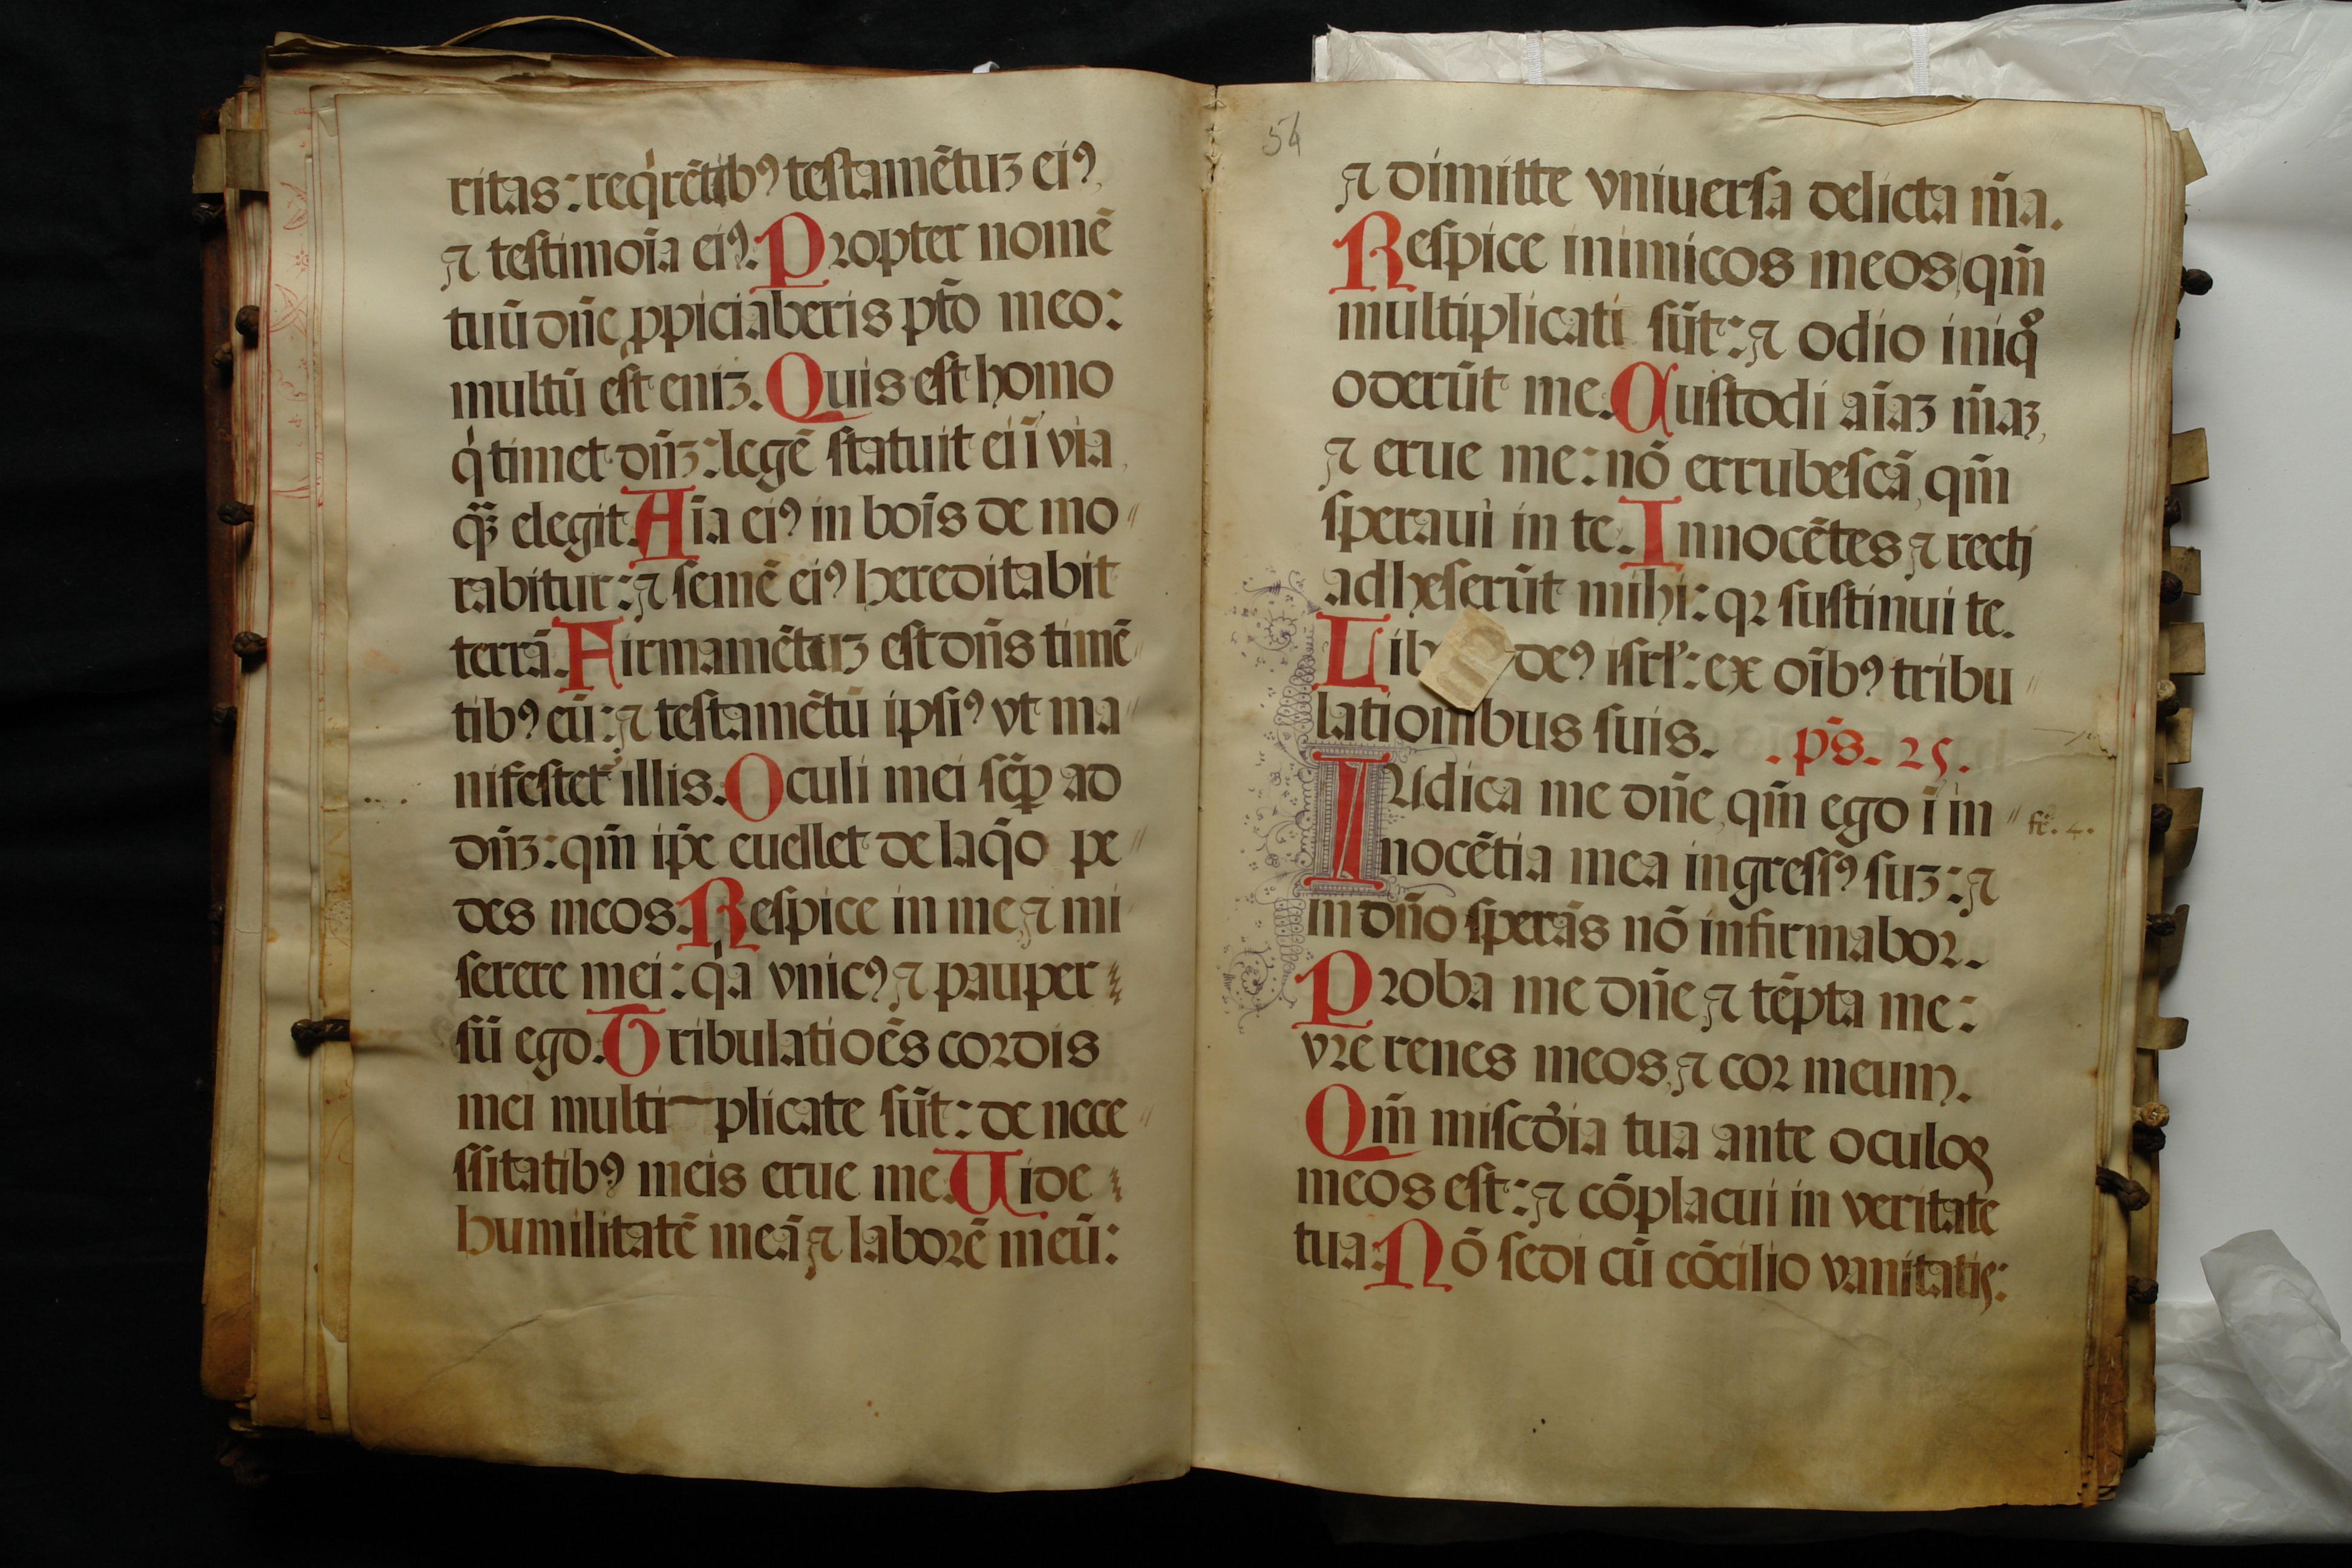 ritas: reqͥrētibꝰ testamētuꝫ eiꝰ,
⁊ testimoīa eiꝰ: Propter nomē
tuū dn̄e ꝓpiciaberis pctō meo:
multū est eniꝫ. Quis est homo
qͥ timet dn̄ꝫ: legē statuit ei ī via
q̄ꝫ elegit. Aīa eiꝰ in boīs de mo〃
rabitur: ⁊ semē eiꝰ hereditabit
terrā. Firmamētuꝫ est dn̄s timē〃
tibꝰ eū: ⁊ testamētū ipsiꝰ vt ma〃
nifestet᷑ illis. Oculi mei sēꝑ ad
dn̄ꝫ: qm̄ ip̄e euellet de laq̄o pe〃
des meos. Respice in me ⁊ mi
serere mei: qͥa vnicꝰ ⁊ pauper
sū ego. Tribulatioēs cordis
mei multi plicate sūt: de nece〃
ssitatibꝰ meis erue me. Uide
humilitatē meā ⁊ laborē meū:
54
⁊ dimitte vniuersa delicta m̄a.
Respice inimicos meos, qm̄
multiplicati sūt: ⁊ odio iniqͦ
oderūt me. Custodi aīaꝫ m̄aꝫ,
⁊ erue me: nō errubescā, qm̄
speraui in te. Innocētes ⁊ recti
adheserūt mihi: qꝛ sustinui te.
Lib deꝰ isrl̓: ex oībꝰ tribu〃
lationibus suis. . ps̄. 25.
IUdica me dn̄e, qm̄ ego ī in〃 fe᷑. 4.
nocētia mea ingressꝰ suꝫ: ⁊
in dn̄o sperās nō infirmabor.
Proba me dn̄e ⁊ tēpta me:
vre renes meos, ⁊ cor meum.
Qm̄ miscd̓ia tua ante oculos
meos est: ⁊ cōplacui in veritate
tua. Nō sedi cū cōcilio vanitatis: